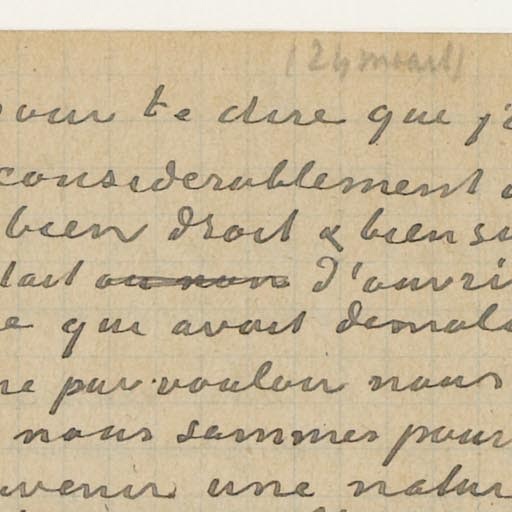 (24 maart)
pour te dire que j'
considerablement
bien droit & bien su
tait ou non d'ouvri
e que avait demol
ne pas vouloir nous
nous sommes pour
venir une natur